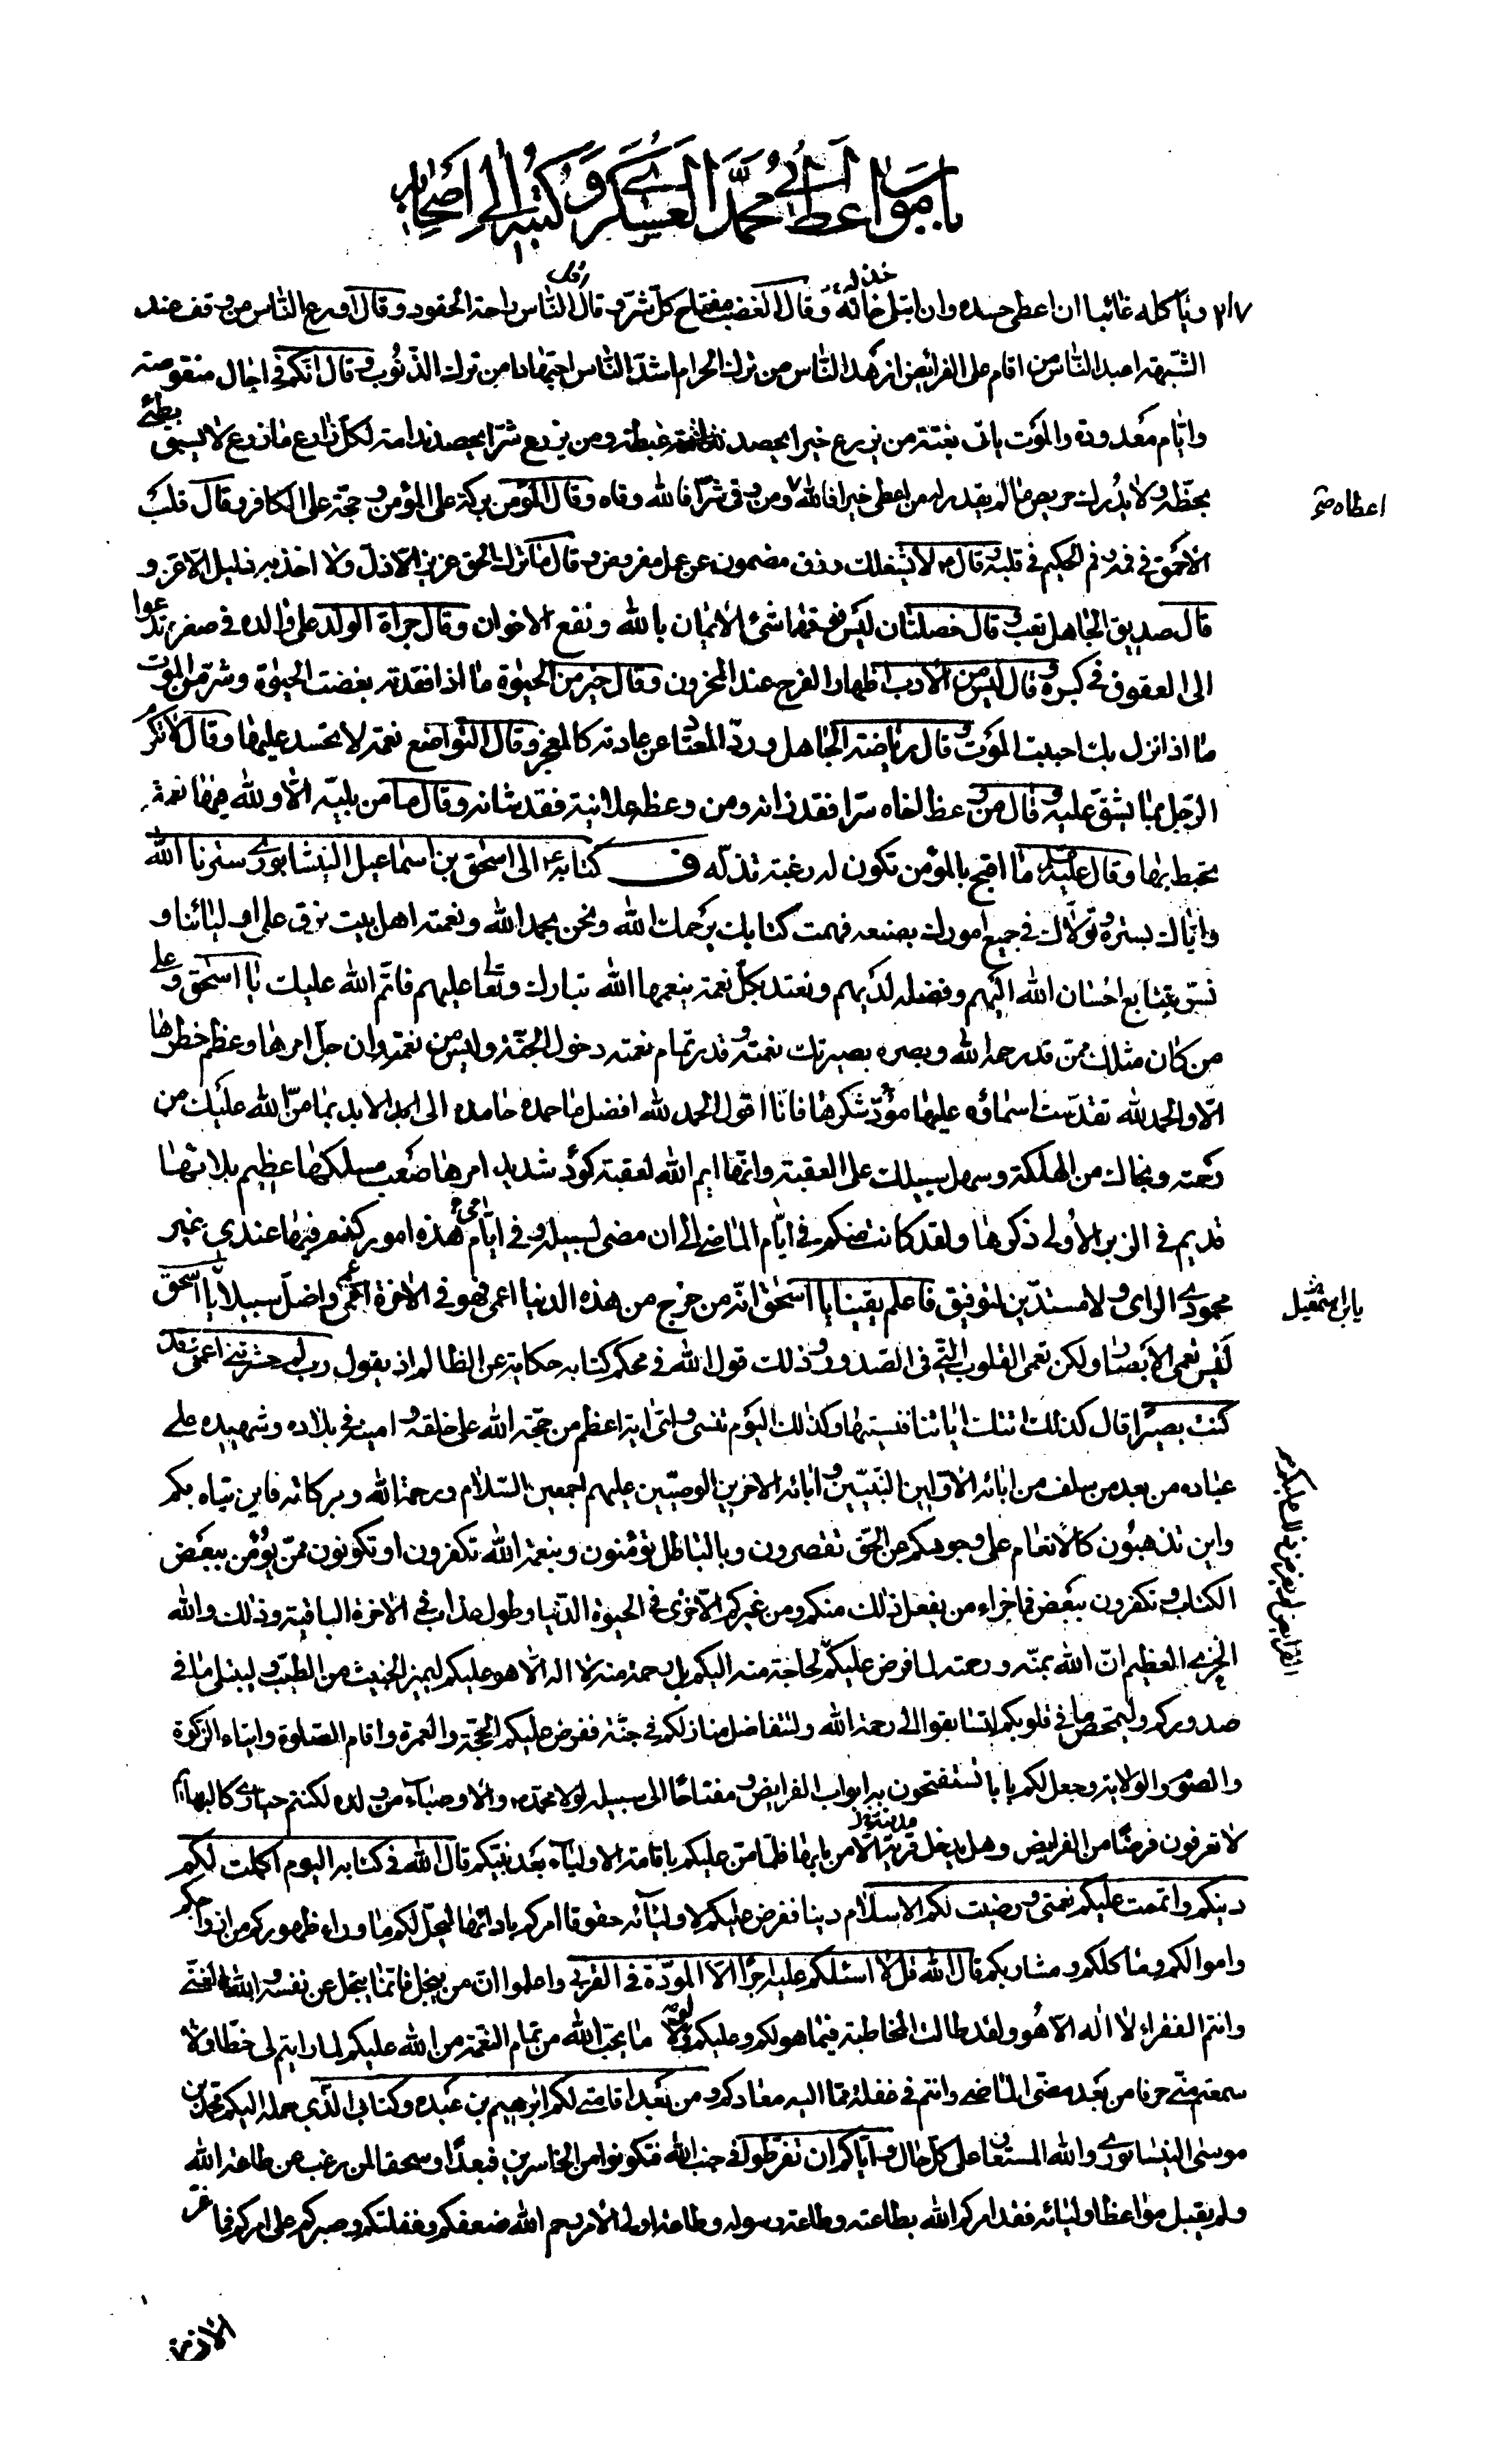 باب مواعظ أبي محمد العسكري وكتبه إلى أصحابه
٢١٧ ويأكله غائبا ان اعطى حسده وان ابتلى خانه وقال الغضب مفتاح كل شر وقال اقل الناس راحة الحقود وقال اورع الناس من وقف عند
الشبهة اعبد الناس من اقام على الفرائض ازهد الناس من ترك الحرام اشد الناس اجتهادا من ترك الذنوب وقال انكم في اجال منقوصة
وايام معدودة والموت ياتى بغتة من يزرع خيرا يحصد غبطة ومن يزرع شرا يحصد ندامة لكل زارع ما زرع لا يسبق بطئ
بحظه ولا يدرك حريص ما لم يقدر له من اعطى خيرا فالله ومن وقى شرا فالله وقاه وقال المؤمن بركة على المؤمن وحجة على الكافر وقال قلب
اعطاه صح
الاحمق في فمه وفم الحكيم في قلبه وقال لا يشغلك رزق مضمون عن عمل مفروض وقال ما ترك الحق عزيز الا ذل ولا اخذ به ذليل الا عز و
قال صديق الجاهل تعب وقال خصلتان ليس فوقهما شئ الايمان بالله ونفع الاخوان وقال جراة الولد على والده في صغره تدعوا
الى العقوق في كبره وقال ليس من الادب اظهار الفرح عند المحزون وقال خير من الحيوة ما اذا فقدته بغضت الحيوة وشر من الموت
ما اذا نزل بك احببت الموت وقال رياضة الجاهل ورد المعتاد عن عادته كالمعجز وقال التواضع نعمة لا يحسد عليها وقال لا تكرم
الرجل بما يشق عليه وقال من وعظ اخاه سرا فقد زانه ومن وعظه علانية فقد شانه وقال ما من بلية الا ولله فيها نعمة
تحيط بها وقال عليه السلام ما اقبح بالمؤمن تكون له رغبة تذله ف كتابه ع الى اسحق بن اسماعيل النيشابوري سترنا الله
واياك بستره وتولاك في جميع امورك بصنعه فهمت كتابك يرحمك الله ونحن بحمد الله ونعمته اهل بيت نرق على اوليائنا و
نسر بتتابع احسان الله اليهم وفضله لديهم ونعتد بكل نعمة ينعمها الله تبارك وتعالى عليهم فاتم الله عليك يا اسحق وعلى
من كان مثلك ممن قد رحمه الله وبصره بصيرتك نعمته وقدر تمام نعمته دخول الجنة وليس من نعمة وان جل امرها وعظم خطرها
الا والحمد لله تقدست اسماؤه عليها مؤد شكرها فانا اقول الحمد لله افضل ما حمده حامده الى ابد الابد بما من الله عليك من
رحمته ونجاك من الهلكة وسهل سبيلك على العقبة وانها ايم الله لعقبة كؤد شديد امرها صعب مسلكها عظيم بلاؤها
قديم في الزبر الاولى ذكرها ولقد كانت منكم في ايام الماضي الى ان مضى لسبيله وفي ايامي هذه امور كنتم فيها عندي غير
محمودي الراى ولا مسددين لتوفيق فاعلم يقينا يا اسحق انه من خرج من هذه الدنيا اعمى فهو في الاخرة اعمى واضل سبيلا يا اسحق
يا بن اسمعيل
ليس تعمى الابصار ولكن تعمى القلوب التي في الصدور وذلك قول الله في محكم كتابه حكاية عن الظالم اذ يقول رب لم حشرتني اعمى وقد
كنت بصيرا قال كذلك اتتك اياتنا فنسيتها وكذلك اليوم تنسى واى اية اعظم من حجة الله على خلقه وامينه في بلاده وشهيده على
عباده من بعد من سلف من ابائه الاولين النبيين وابائه الاخرين الوصيين عليهم اجمعين السلام ورحمة الله وبركاته فاين يتاه بكم
واين تذهبون كالانعام على وجوهكم عن الحق تصدفون وبالباطل تؤمنون وبنعمة الله تكفرون او تكونون ممن يؤمن ببعض
الكتاب وتكفرون ببعض فما جزاء من يفعل ذلك منكم ومن غيركم الا خزى في الحيوة الدنيا وطول عذاب في الاخرة الباقية وذلك والله
الخزي العظيم ان الله بمنه ورحمته لما فرض عليكم لحاجة منه اليكم بل رحمة منه لا اله الا هو عليكم ليميز الخبيث من الطيب وليبتلى ما في
الفرائض لم يفرض ذلك عليكم
صدوركم وليمحص ما في قلوبكم لتسابقوا الى رحمة الله ولتتفاضل منازلكم في جنته ففرض عليكم الحج والعمرة واقام الصلوة وايتاء الزكوة
والصوم والولاية وجعل لكم بابا تستفتحون به ابواب الفرائض ومفتاحا الى سبيله لولا محمد والاوصياء من ولده لكنتم حيارى كالبهائم
لا تعرفون فرضا من الفرايض وهل يدخل قرية الا من بابها فلما من عليكم باقامة الاولياء بعد نبيكم قال الله في كتابه اليوم اكملت لكم
دينكم واتممت عليكم نعمتى ورضيت لكم الاسلام دينا ففرض عليكم لاوليائه حقوقا امركم بادائها ليحل لكم ما وراء ظهوركم من ازواجكم
واموالكم وماكلكم ومشاربكم قال الله قل لا اسئلكم عليه اجرا الا المودة في القربى واعلموا ان من يبخل فانما يبخل عن نفسه والله الغني
وانتم الفقراء لا اله الا هو ولقد طالت المخاطبة فيما هو لكم وعليكم ولولا ما يحب الله من تمام النعمة من الله عليكم لما رايتم لى خطا ولا
سمعتم منى حرفا من بعد مضى الماضي وانتم في غفلة مما اليه معادكم ومن بعد اقامتى لكم ابرهيم بن عبده وكتابى الذي حمله اليكم محمد بن
موسى النيسابوري والله المستعان على كل حال واياكم ان تفرطوا في جنب الله فتكونوا من الخاسرين فبعدا وسحقا لمن رغب عن طاعة الله
ولم يقبل مواعظ اوليائه فقد امركم الله بطاعته وطاعة رسوله وطاعة اولى الامر رحم الله ضعفكم وغفلتكم وصبركم على امركم فما اغر